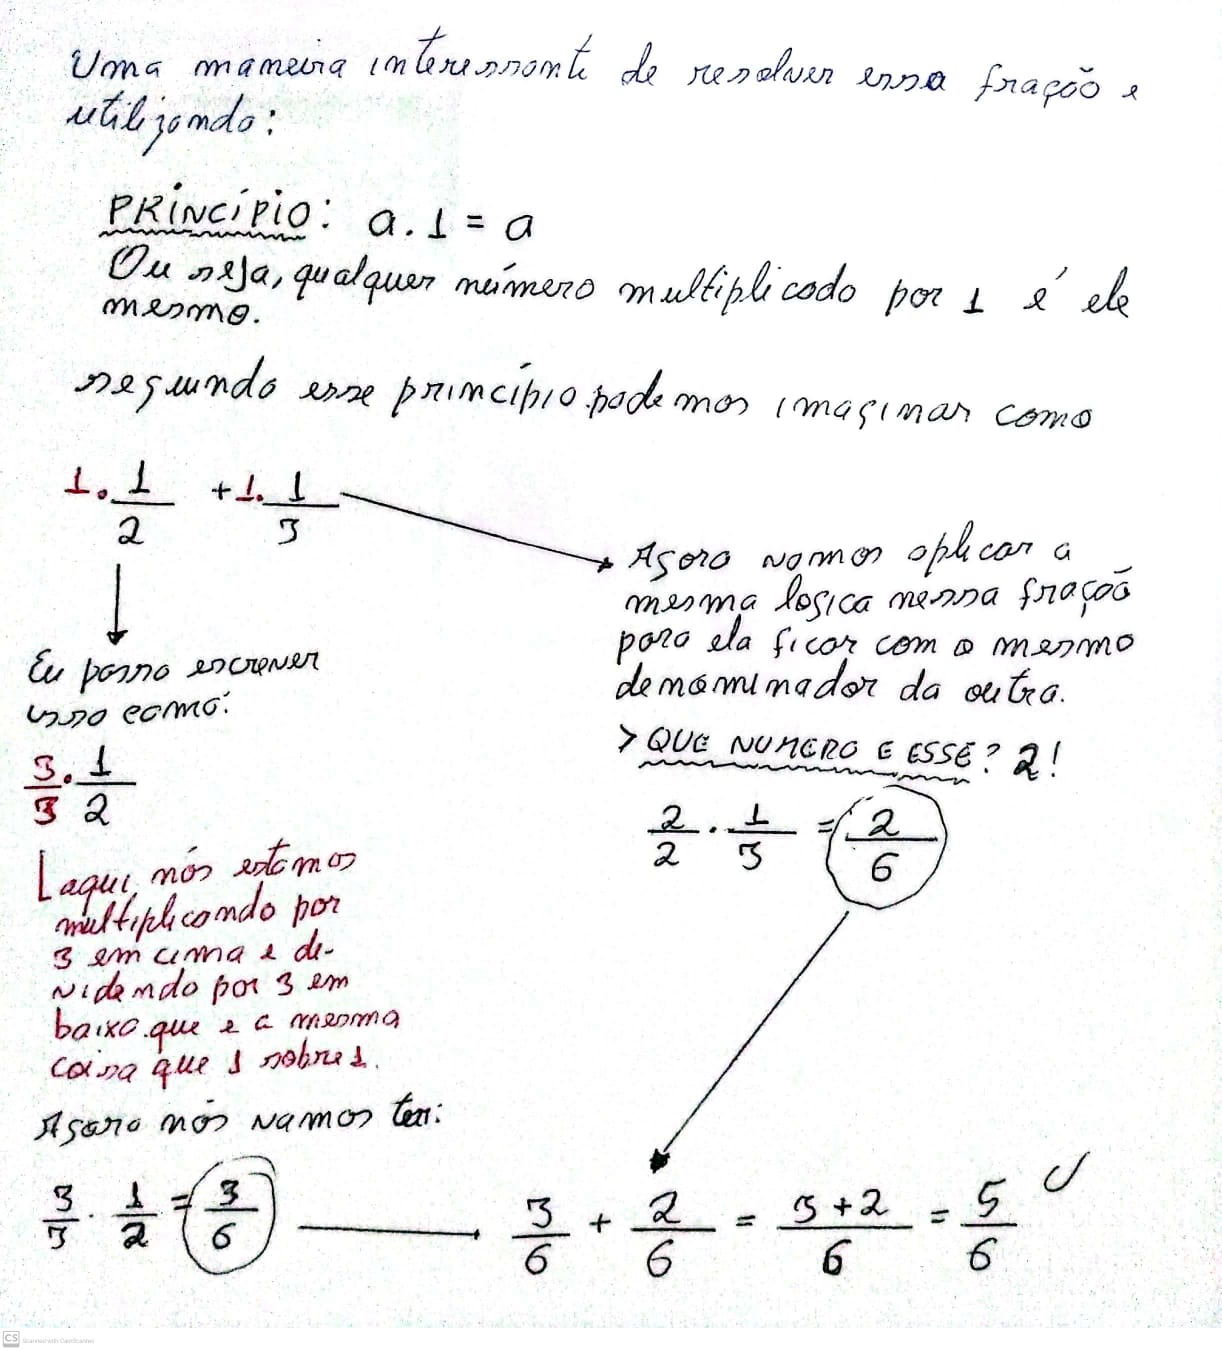 Uma maneira interessante de resolver essa fração e
utilizando:
PRINCÍPIO: a . 1 = a
Ou seja, qualquer número multiplicado por 1 é ele
mesmo.
segundo esse princípio podemos imaginar como
1 . 1/2 + 1 . 1/3
Eu posso escrever
isso como:
3/3 . 1/2
aqui nós estamos
multiplicando por
3 em cima e di-
videndo por 3 em
baixo que e a mesma
coisa que 1 sobre 1.
Agora nós vamos ter:
3/3 . 1/2 = 3/6
Agora vamos aplicar a
mesma logica nessa fração
para ela ficar com o mesmo
denominador da outra.
> QUE NUMERO E ESSE? 2!
2/2 . 1/3 = 2/6
3/6 + 2/6 = 3+2/6 = 5/6
CS Scanned with CamScanner